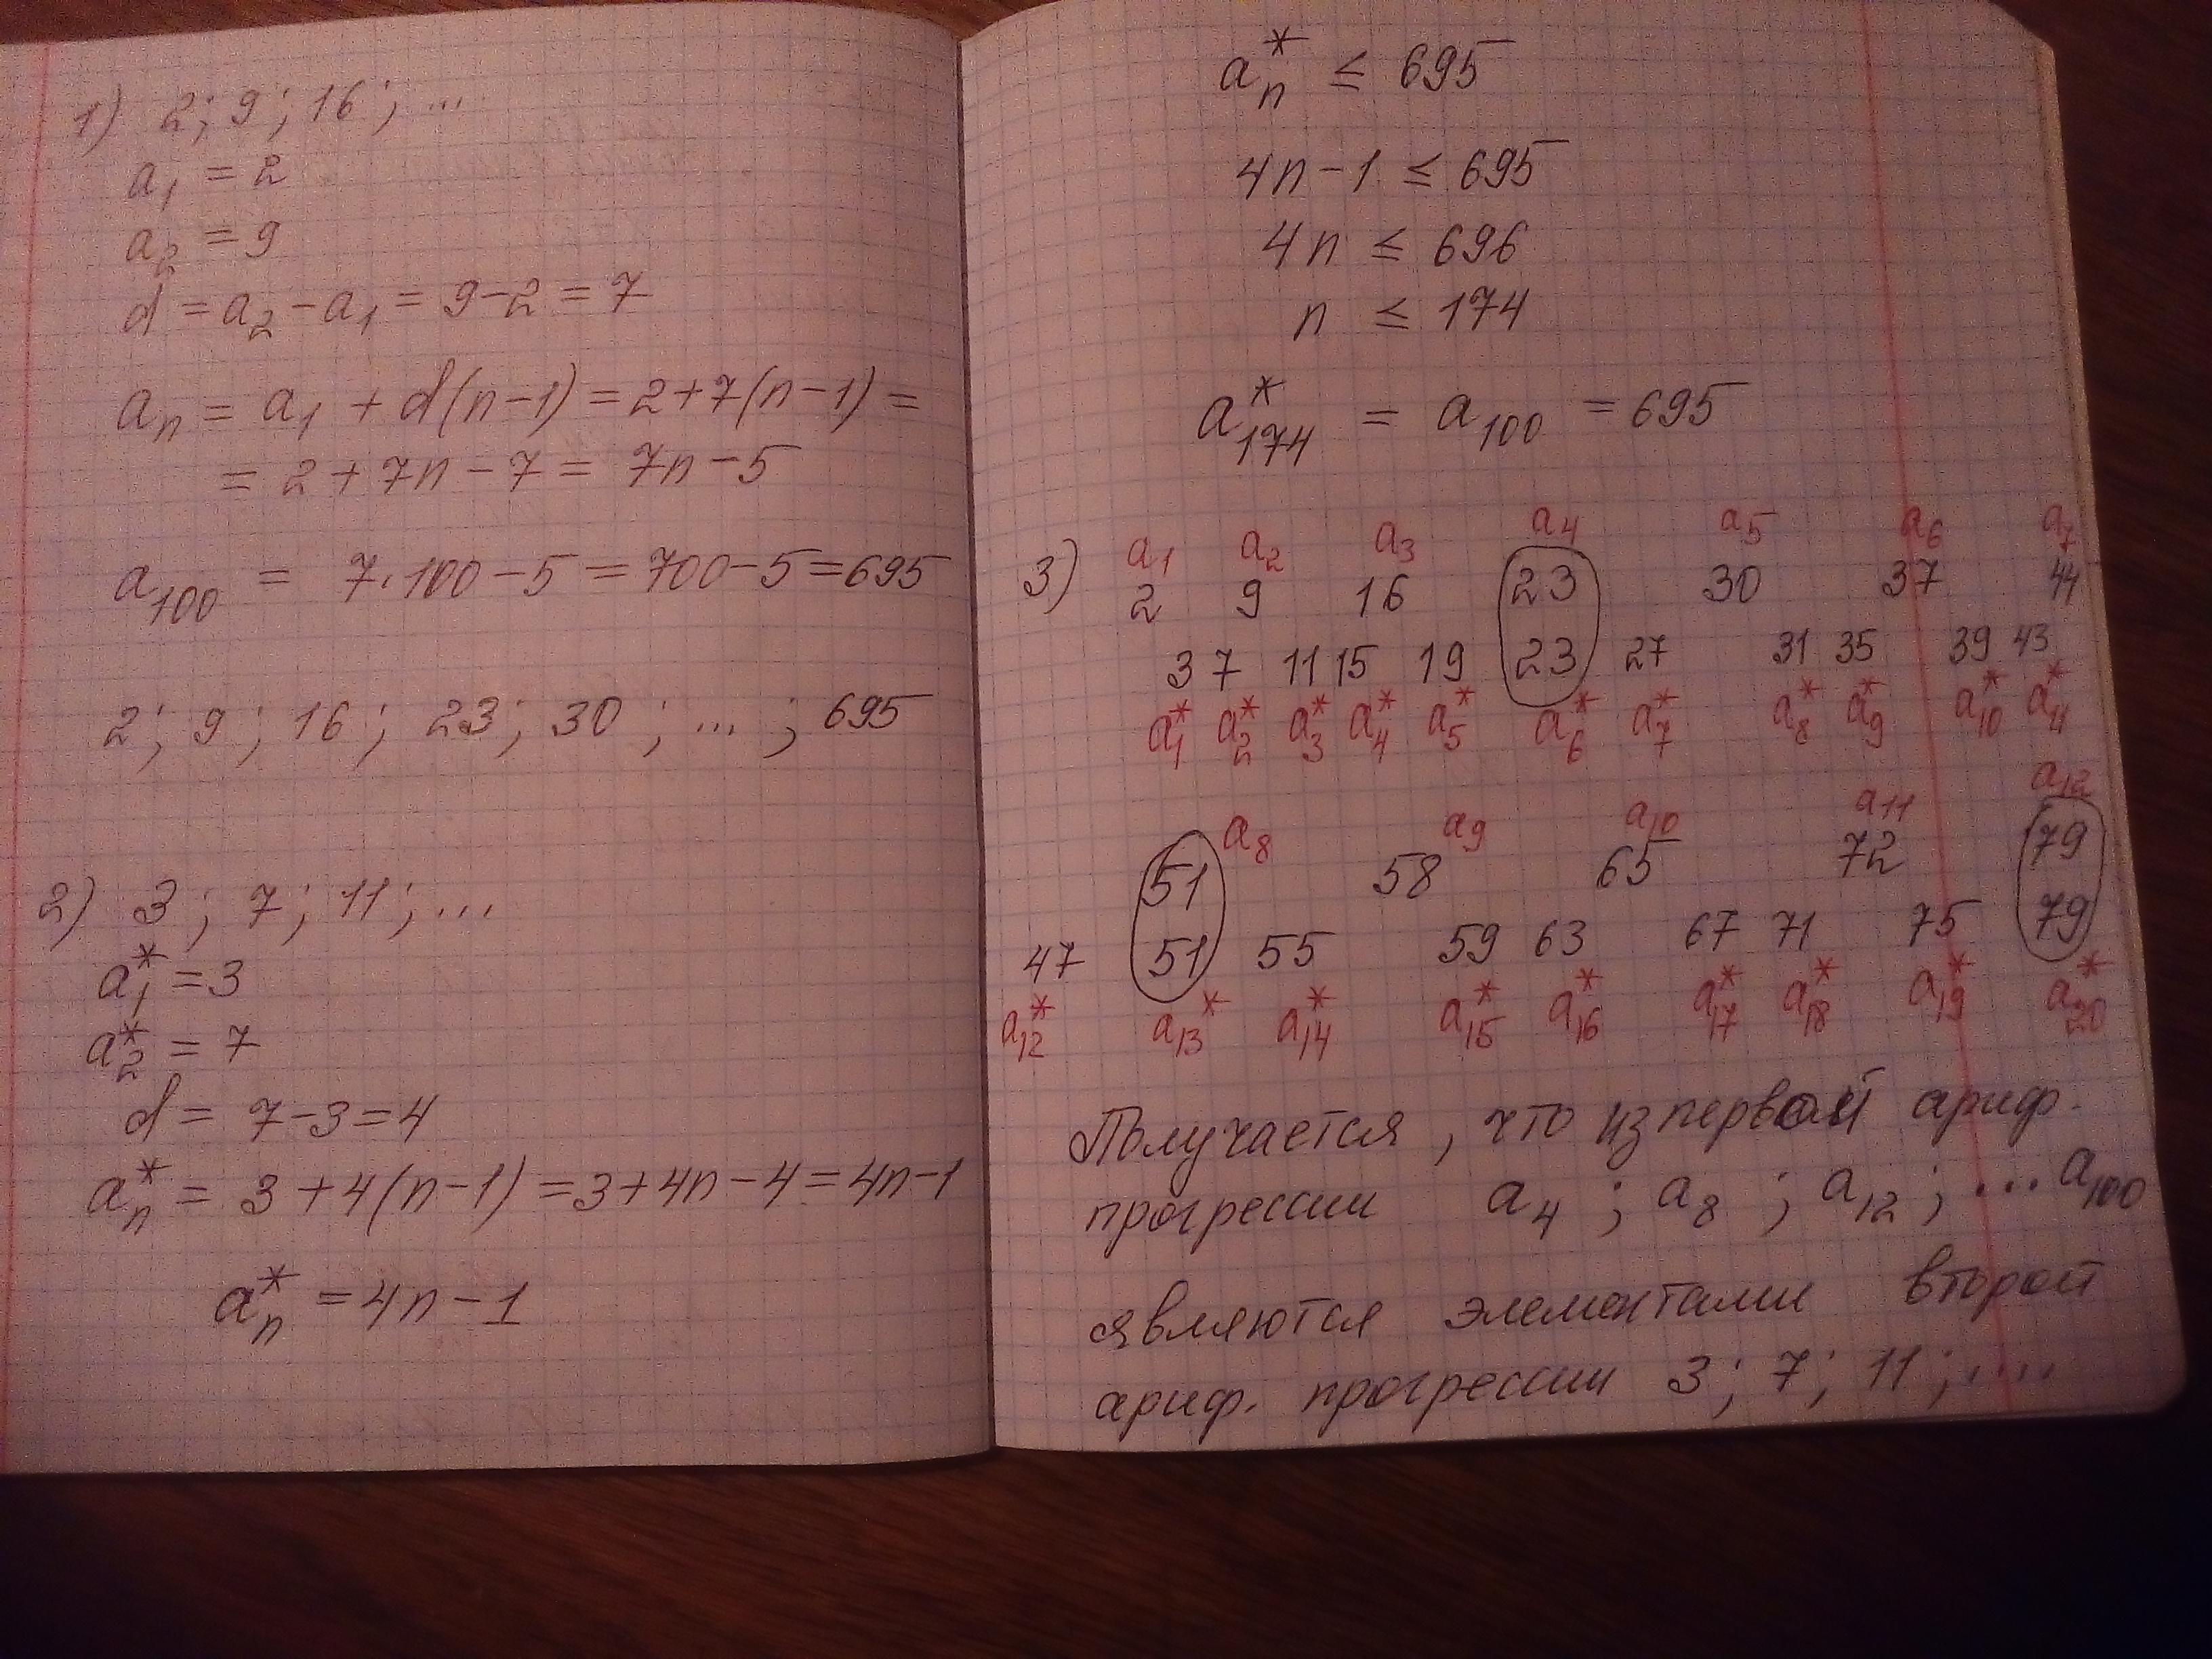 1) 2; 9; 16; ...
a₁ = 2
a₂ = 9
d = a₂ - a₁ = 9 - 2 = 7
aₙ = a₁ + d(n-1) = 2 + 7(n-1) =
= 2 + 7n - 7 = 7n - 5
a₁₀₀ = 7·100 - 5 = 700 - 5 = 695
2; 9; 16; 23; 30; ...; 695
2) 3; 7; 11; ...
a₁* = 3
a₂* = 7
d = 7 - 3 = 4
aₙ* = 3 + 4(n-1) = 3 + 4n - 4 = 4n - 1
aₙ* = 4n - 1
aₙ* ≤ 695
4n - 1 ≤ 695
4n ≤ 696
n ≤ 174
a₁₇₄* = a₁₀₀ = 695
3) a₁ a₂ a₃ a₄ a₅ a₆ a₇
2 9 16 23 30 37 44
3 7 11 15 19 23 27 31 35 39 43
a₁* a₂* a₃* a₄* a₅* a₆* a₇* a₈* a₉* a₁₀* a₁₁*
a₈ a₉ a₁₀ a₁₁ a₁₂
51 58 65 72 79
47 51 55 59 63 67 71 75 79
a₁₂* a₁₃* a₁₄* a₁₅* a₁₆* a₁₇* a₁₈* a₁₉* a₂₀*
Получается, что из первой ариф.
прогрессии a₄; a₈; a₁₂; ... a₁₀₀
являются элементами второй
ариф. прогрессии 3; 7; 11; ....